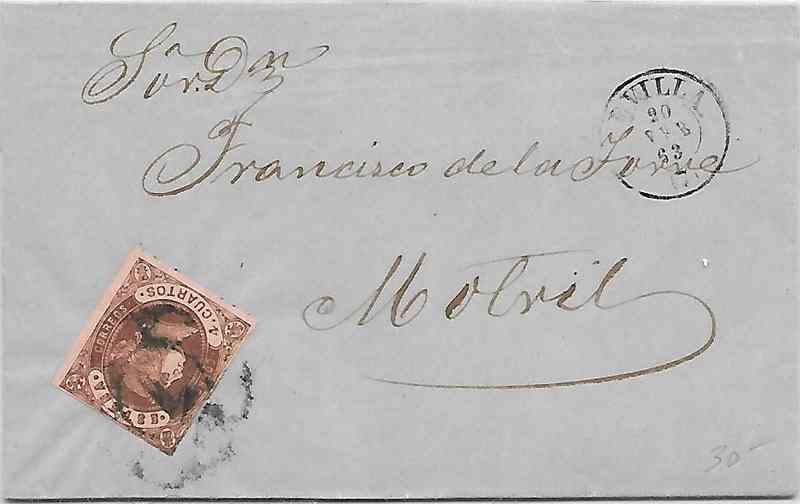 Sor. Dn
Francisco de la Torre
Motril
SEVILLA
20
FEB
63
4 CUARTOS.
CORREOS
ESPAÑA.
30-